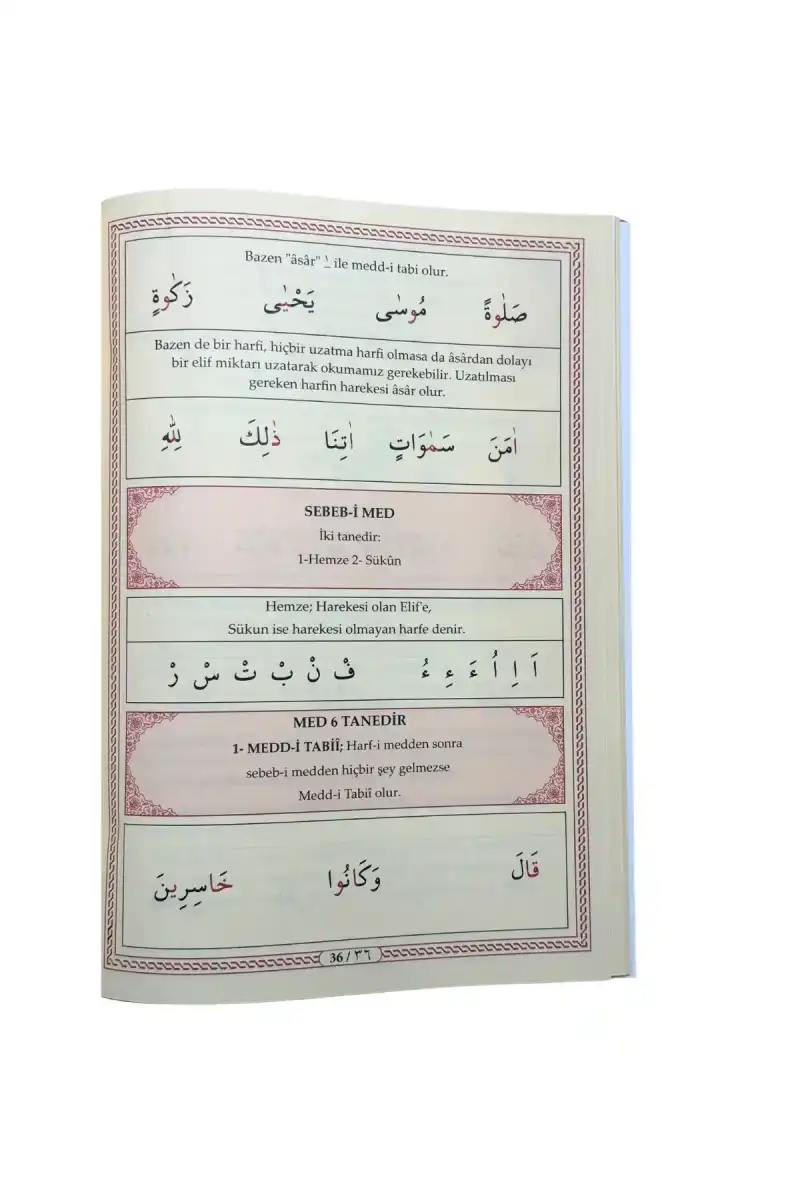 Bazen "âsâr" ـٰ ile medd-i tabi olur.
صَلٰوةً مُوسٰى يَحْيٰى زَكٰوةٍ
Bazen de bir harfi, hiçbir uzatma harfi olmasa da âsârdan dolayı
bir elif miktarı uzatarak okumamız gerekebilir. Uzatılması
gereken harfin harekesi âsâr olur.
اٰمَنَ سَمٰوَاتٍ اٰتِنَا ذٰلِكَ لِلّٰهِ
SEBEB-İ MED
İki tanedir:
1-Hemze 2- Sükûn
Hemze; Harekesi olan Elif'e,
Sükun ise harekesi olmayan harfe denir.
اَ اِ اُ ءَ ءِ ءُ فْ نْ بْ تْ سْ رْ
MED 6 TANEDİR
1- MEDD-İ TABİÎ; Harf-i medden sonra
sebeb-i medden hiçbir şey gelmezse
Medd-i Tabiî olur.
قَالَ وَكَانُوا خَاسِرِينَ
36 / ٣٦